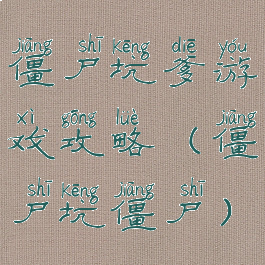 jiāng shī kēng diē yóu
僵尸坑爹游
xì gōng luè jiāng
戏攻略（僵
shī kēng jiāng shī
尸坑僵尸）